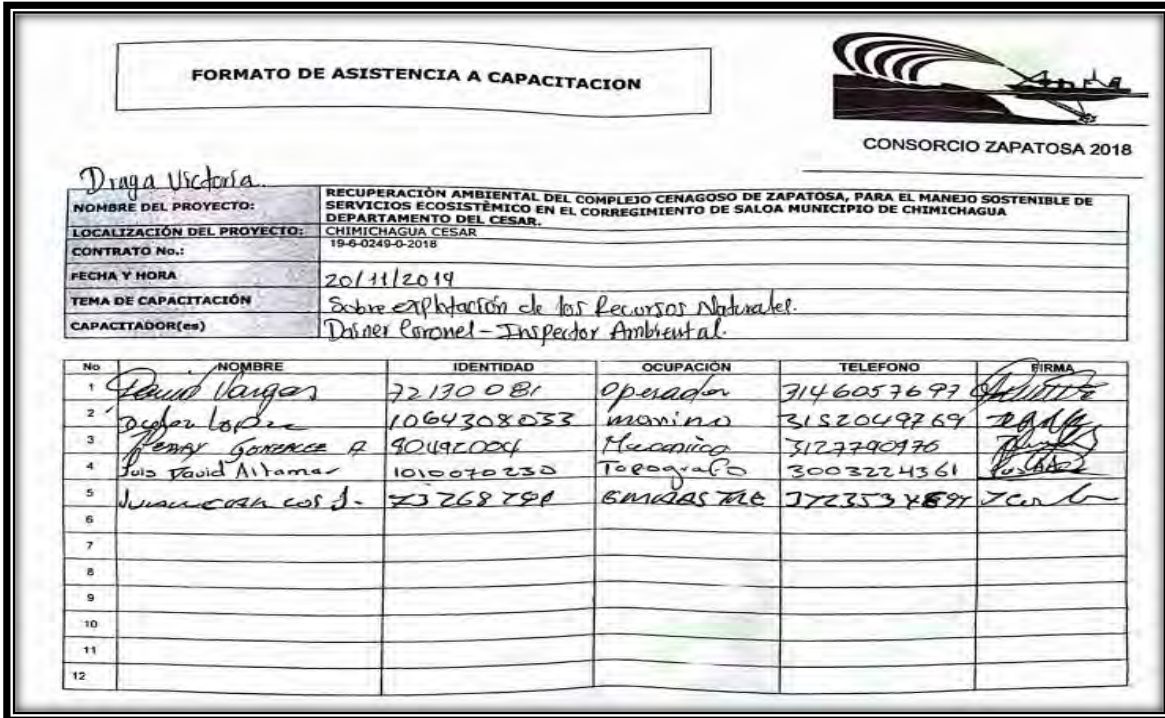 FORMATO DE ASISTENCIA A CAPACITACION
CONSORCIO ZAPATOSA 2018
Draga Victoria.
NOMBRE DEL PROYECTO: RECUPERACIÓN AMBIENTAL DEL COMPLEJO CENAGOSO DE ZAPATOSA, PARA EL MANEJO SOSTENIBLE DE
SERVICIOS ECOSISTÈMICO EN EL CORREGIMIENTO DE SALOA MUNICIPIO DE CHIMICHAGUA
DEPARTAMENTO DEL CESAR.
LOCALIZACIÓN DEL PROYECTO: CHIMICHAGUA CESAR
CONTRATO No.: 19-6-0249-0-2018
FECHA Y HORA 20/11/2019
TEMA DE CAPACITACIÓN Sobre explotación de los Recursos Naturales.
CAPACITADOR(es) Dainer Coronel - Inspector Ambiental.
No NOMBRE IDENTIDAD OCUPACIÓN TELEFONO FIRMA
1 David Vargas 72130081 Operador 3146057697
2 Lopez 1064308033 marino 3152049769
3 Henry Gonzalez A 80492004 Mecanico 3127790976
4 Luis David Altamar 1010070230 Topografo 3003224361
5
6
7
8
9
10
11
12